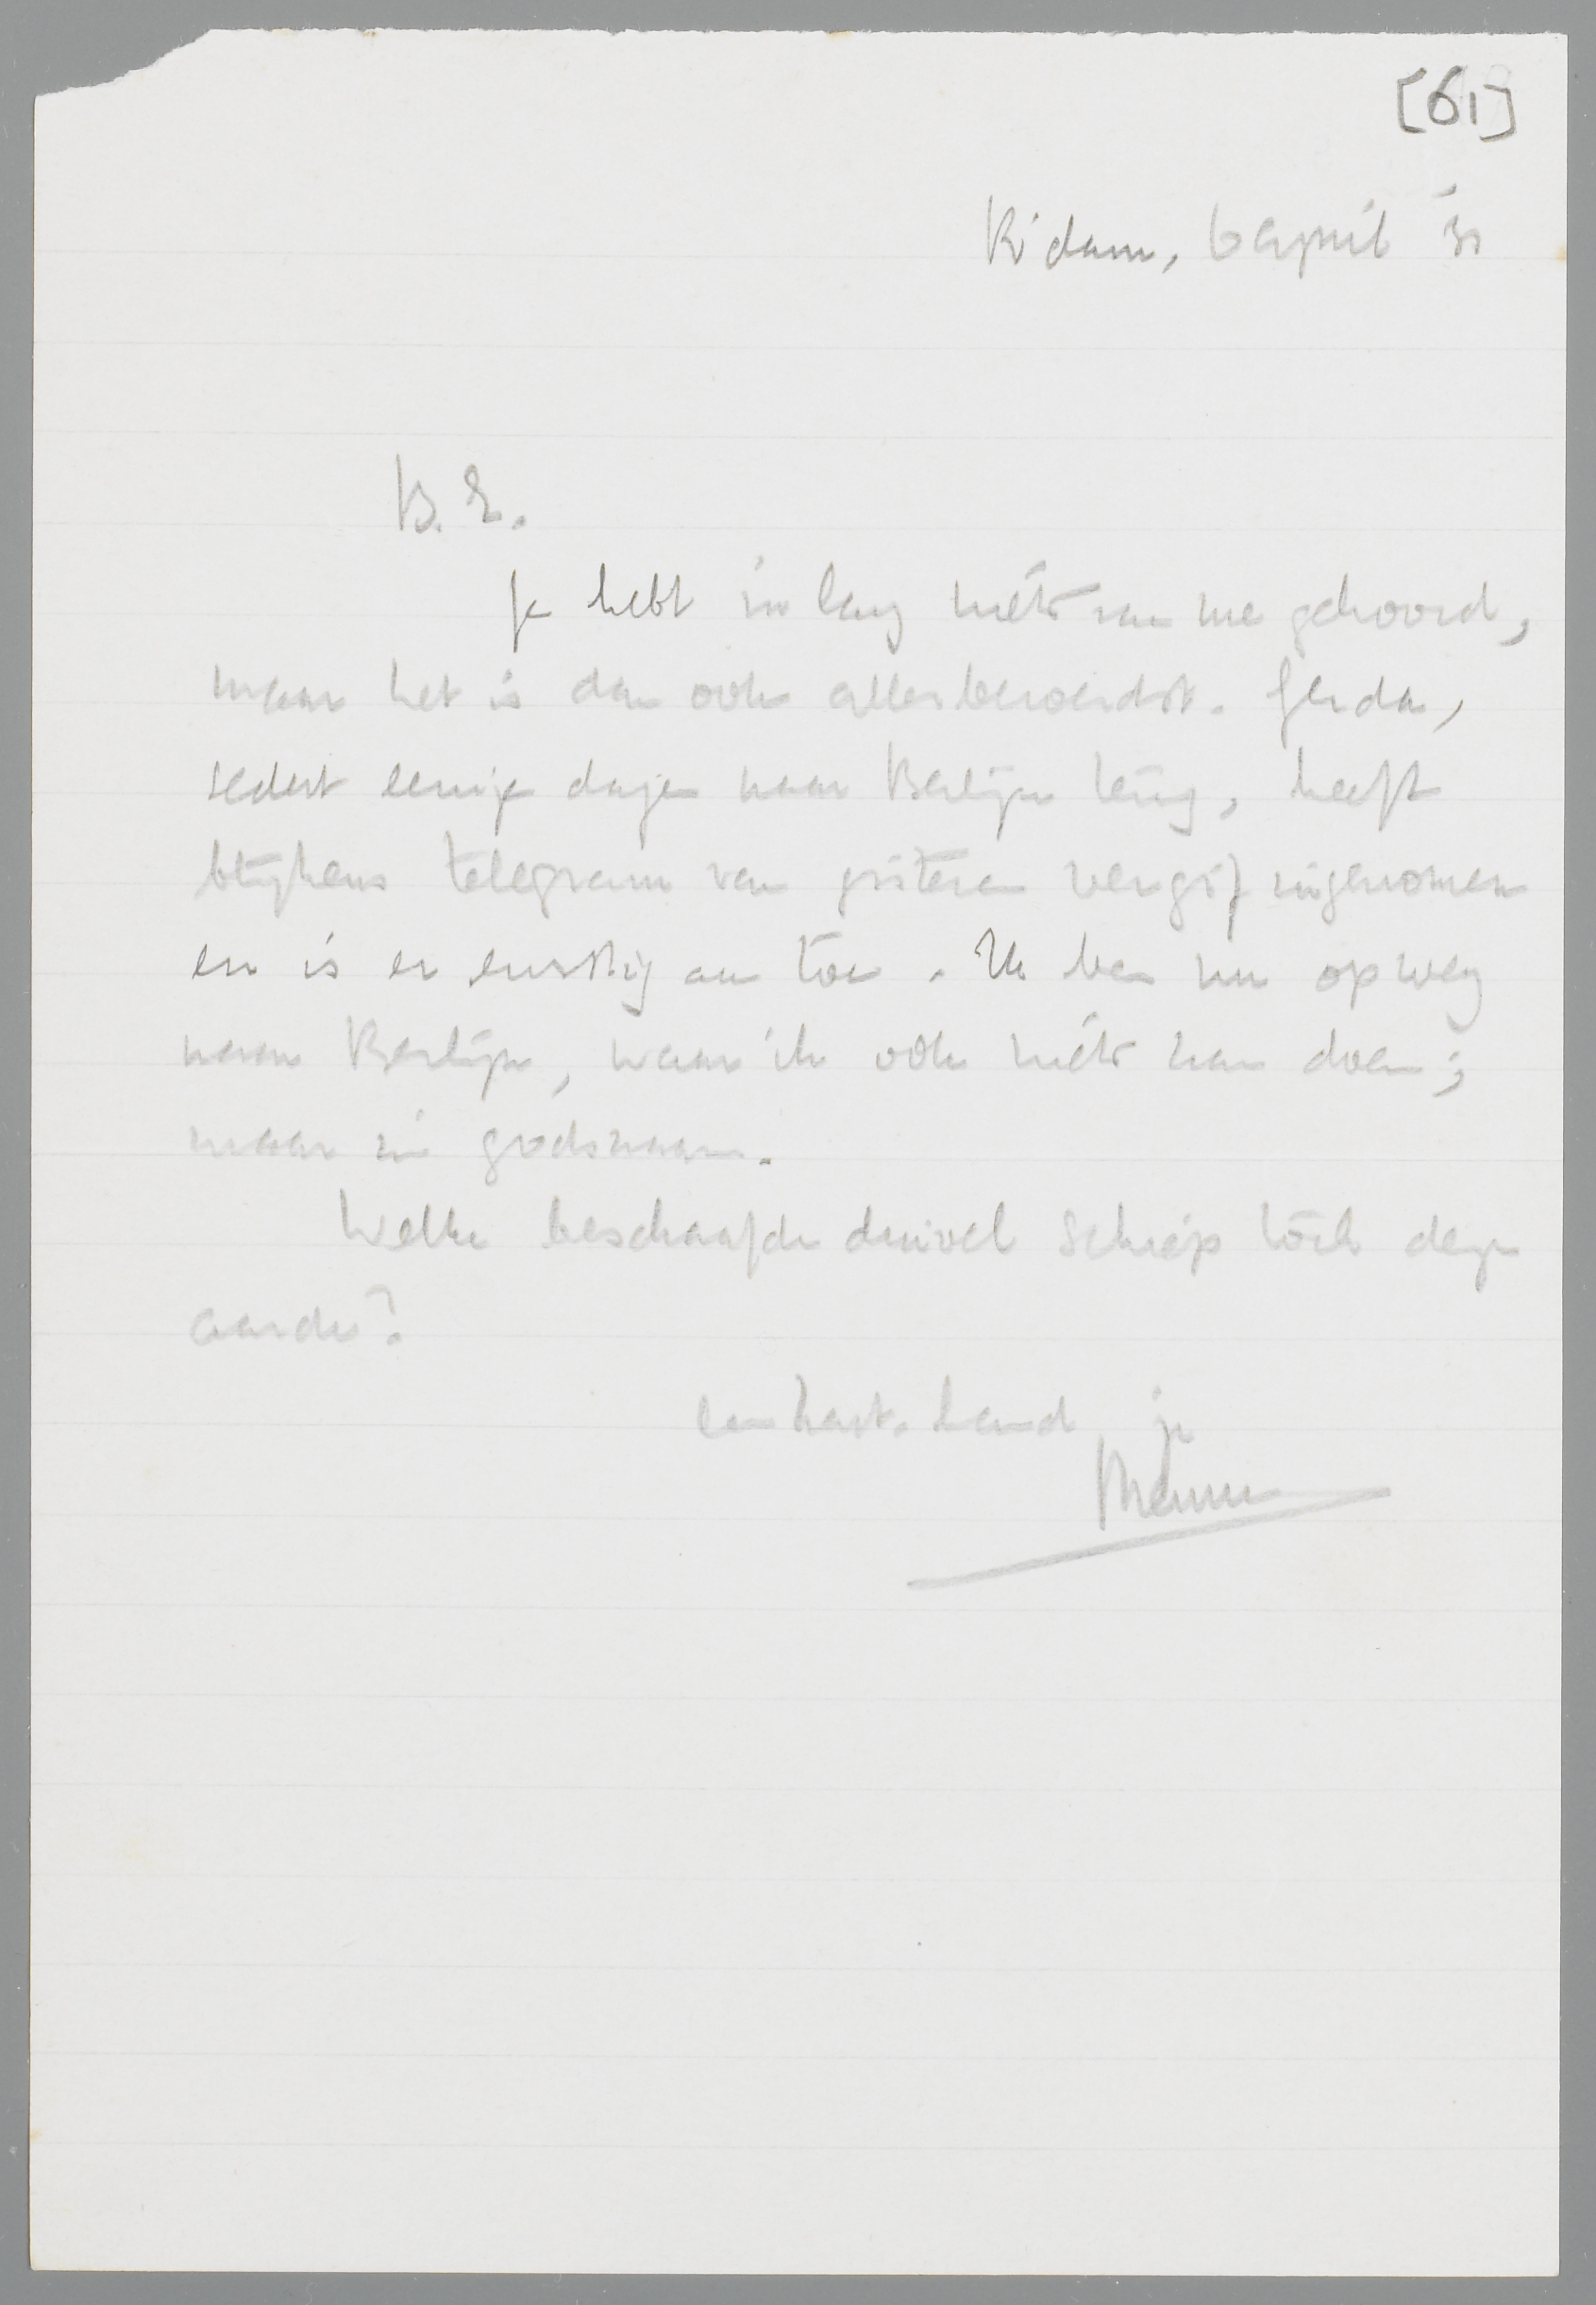 [61]
R'dam, 6 april '31
B. E.
Je hebt in lang niets van me gehoord,
maar het is dan ook allerberoerdst. Gerda,
sedert eenige dagen naar Berlijn terug, heeft
blijkens telegram van gisteren vergif ingenomen
en is er ernstig aan toe. Ik ben nu op weg
naar Berlijn, waar ik ook niets kan doen;
maar in godsnaam.
Welke beschaafde duivel schiep toch deze
aarde?
een hart. hand je
Menno